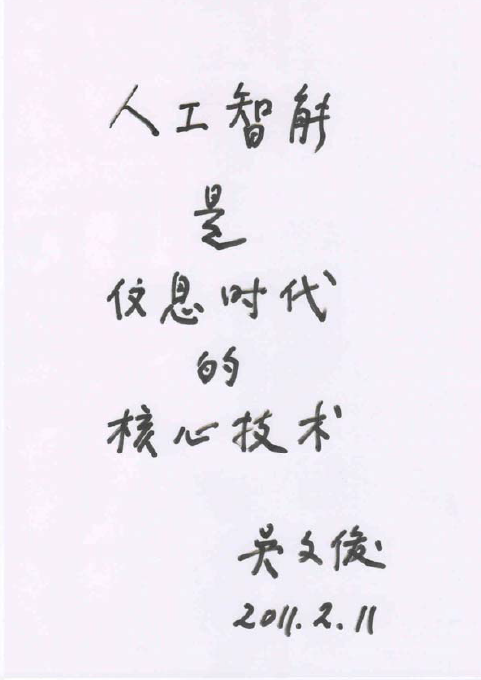 人工智能
是
信息时代
的
核心技术
吴文俊
2011.2.11